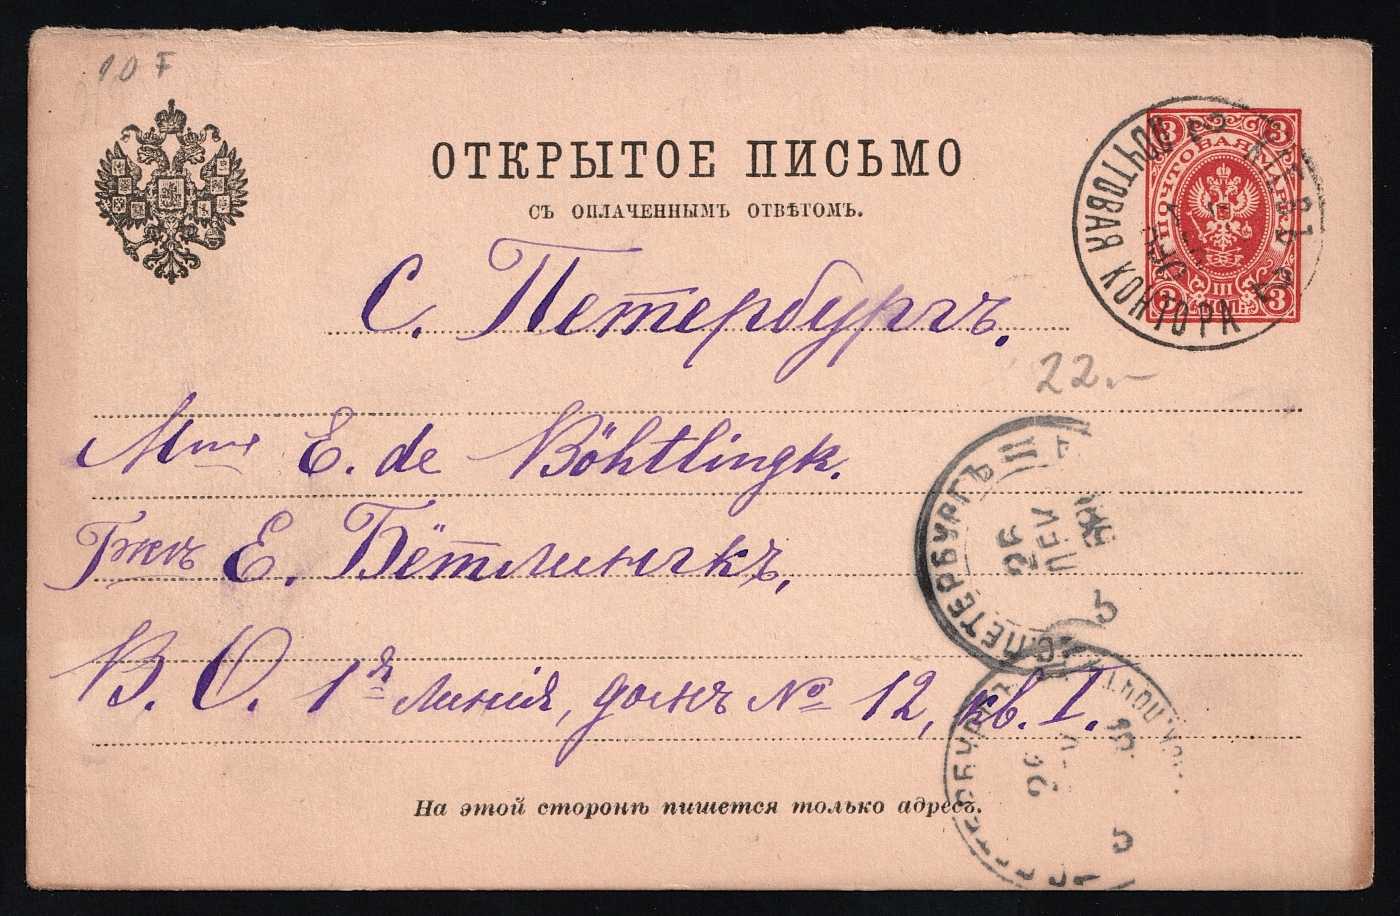 10 F
ОТКРЫТОЕ ПИСЬМО
СЪ ОПЛАЧЕННЫМЪ ОТВѢТОМЪ.
3 3
ПОЧТОВАЯ МАРКА
3 3
ПОЧТОВАЯ КОНТОРА
С. Петербургъ.
22.-
Mme E. de Böhtlingk.
Гжѣ Е. Бётлингкъ,
В. О. 1я линія, домъ № 12, кв. I.
С.ПЕТЕРБУРГЪ
26
5
26
5
На этой сторонѣ пишется только адресъ.